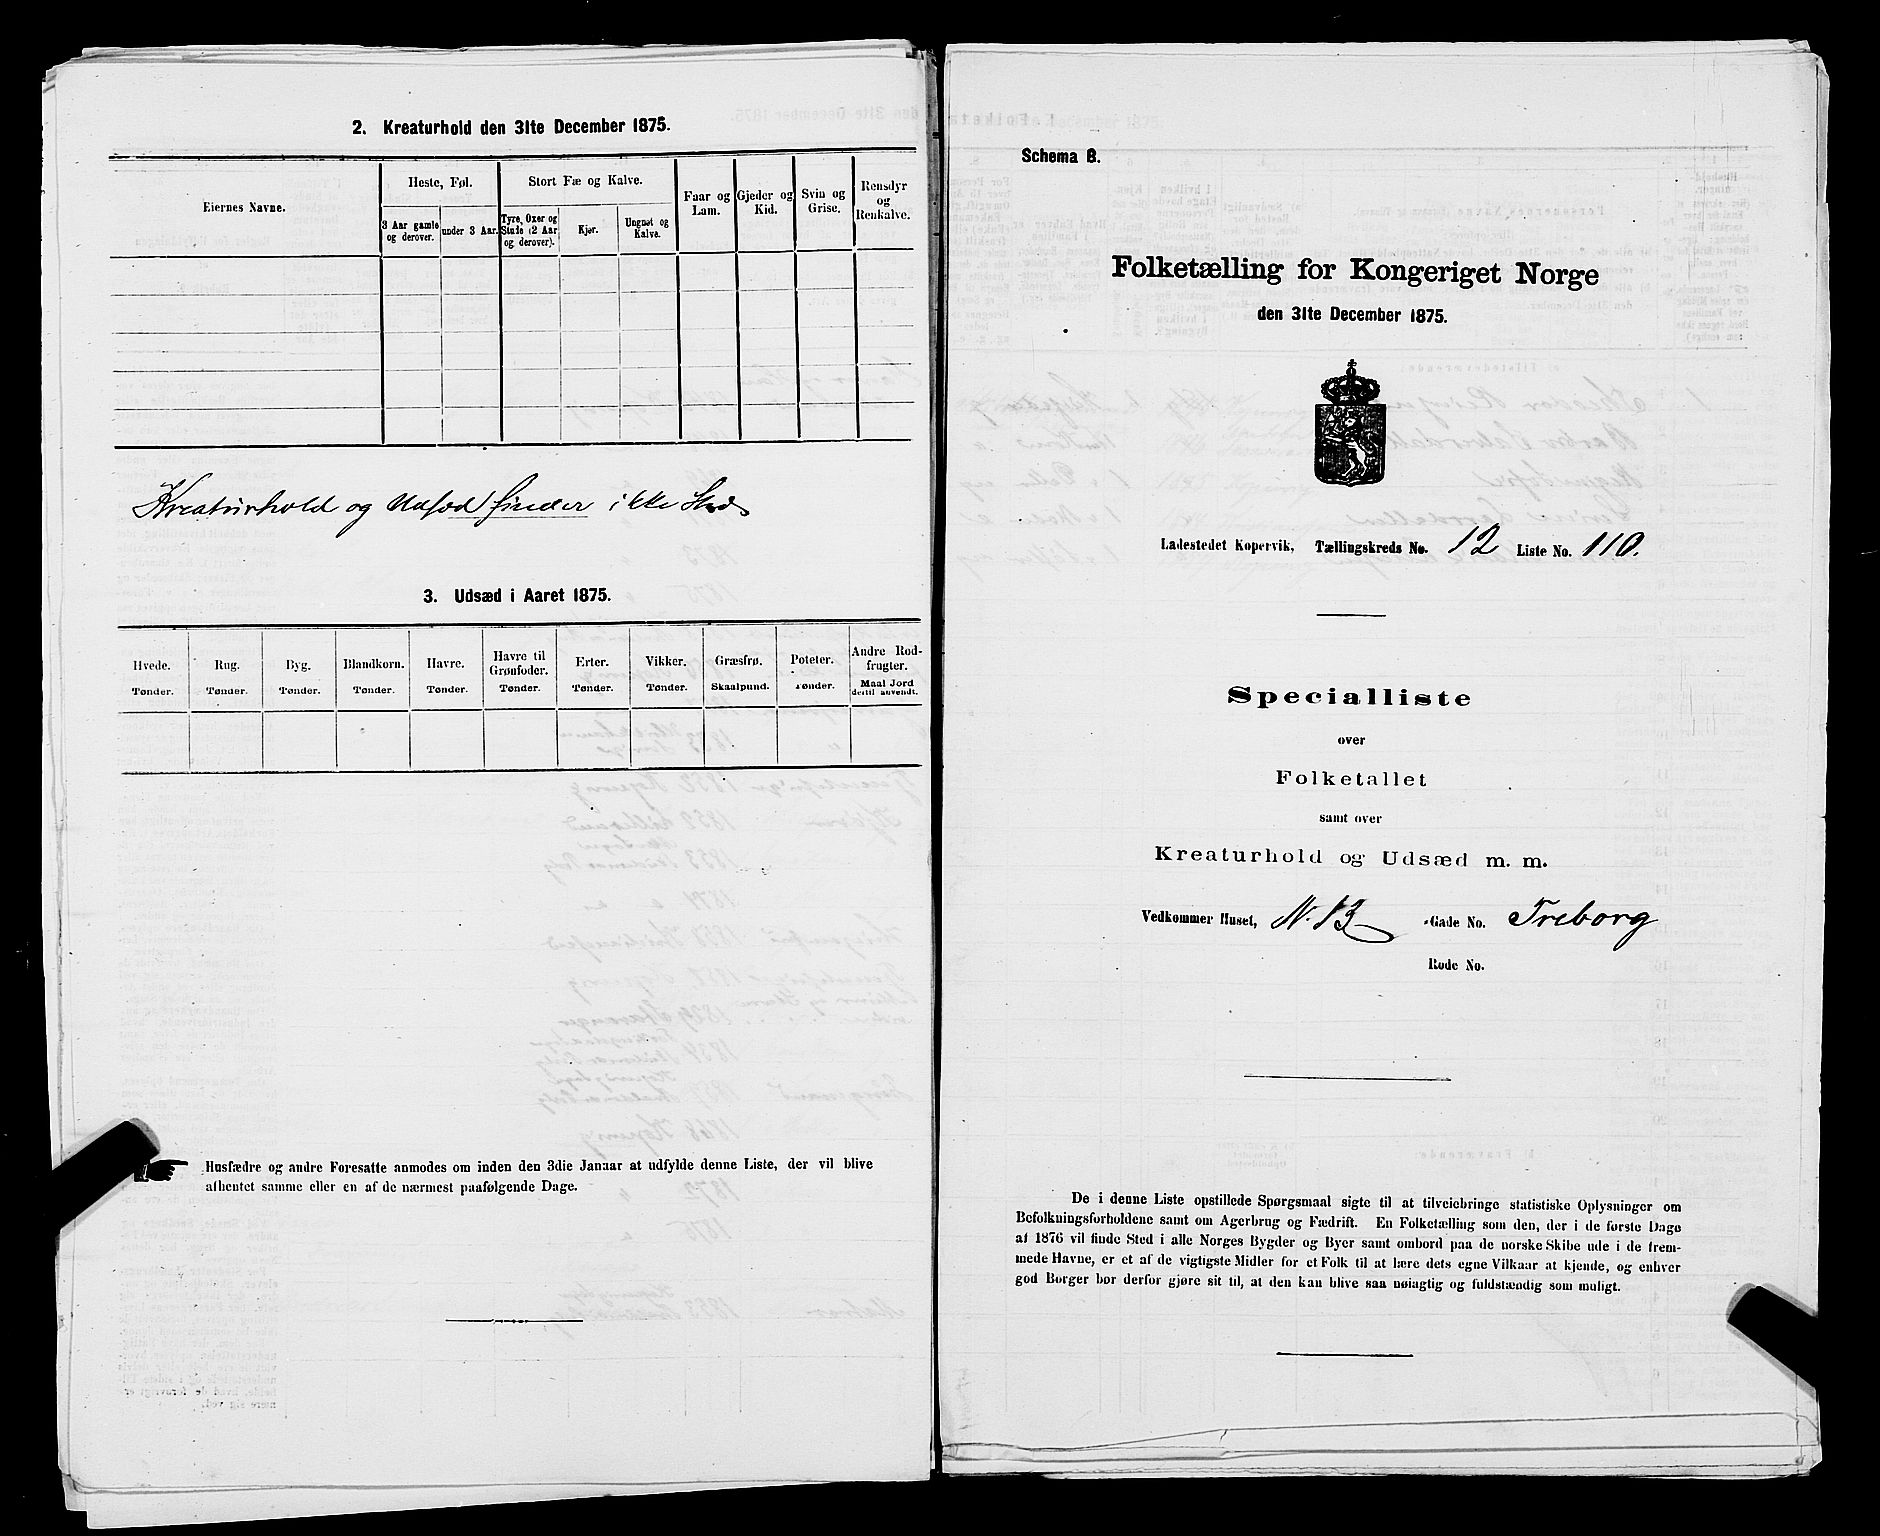 2. Kreaturhold den 31te December 1875.
Eiernes Navne.
Heste, Føl.
3 Aar gamle og derover.
under 3 Aar.
Stort Fæ og Kalve.
Tyre, Oxer og Stude (2 Aar og derover).
Kjør.
Ungnøt og Kalve.
Faar og Lam.
Gjeder og Kid.
Svin og Grise.
Rensdyr og Renkalve.
Kreaturhold og Udsæd finder ikke Sted
3. Udsæd i Aaret 1875.
Hvede. Tønder.
Rug. Tønder.
Byg. Tønder.
Blandkorn. Tønder.
Havre. Tønder.
Havre til Grønfoder. Tønder.
Erter. Tønder.
Vikker. Tønder.
Græsfrø. Skaalpund.
Poteter. Tønder.
Andre Rodfrugter. Maal Jord dertil anvendt.
Husfædre og andre Foresatte anmodes om inden den 3die Januar at udfylde denne Liste, der vil blive
afhentet samme eller en af de nærmest paafølgende Dage.
Schema B.
Folketælling for Kongeriget Norge
den 31te December 1875.
Ladestedet Kopervik, Tællingskreds No. 12 Liste No. 110.
Specialliste
over
Folketallet
samt over
Kreaturhold og Udsæd m. m.
Vedkommer Huset, N. 13 -Gade No. Treborg
Rode No.
De i denne Liste opstillede Spørgsmaal sigte til at tilveiebringe statistiske Oplysninger om
Befolkningsforholdene samt om Agerbrug og Fædrift. En Folketælling som den, der i de første Dage
af 1876 vil finde Sted i alle Norges Bygder og Byer samt ombord paa de norske Skibe ude i de frem-
mede Havne, er et af de vigtigste Midler for et Folk til at lære dets egne Vilkaar at kjende, og enhver
god Borger bør derfor gjøre sit til, at den kan blive saa nøiagtig og fuldstændig som muligt.